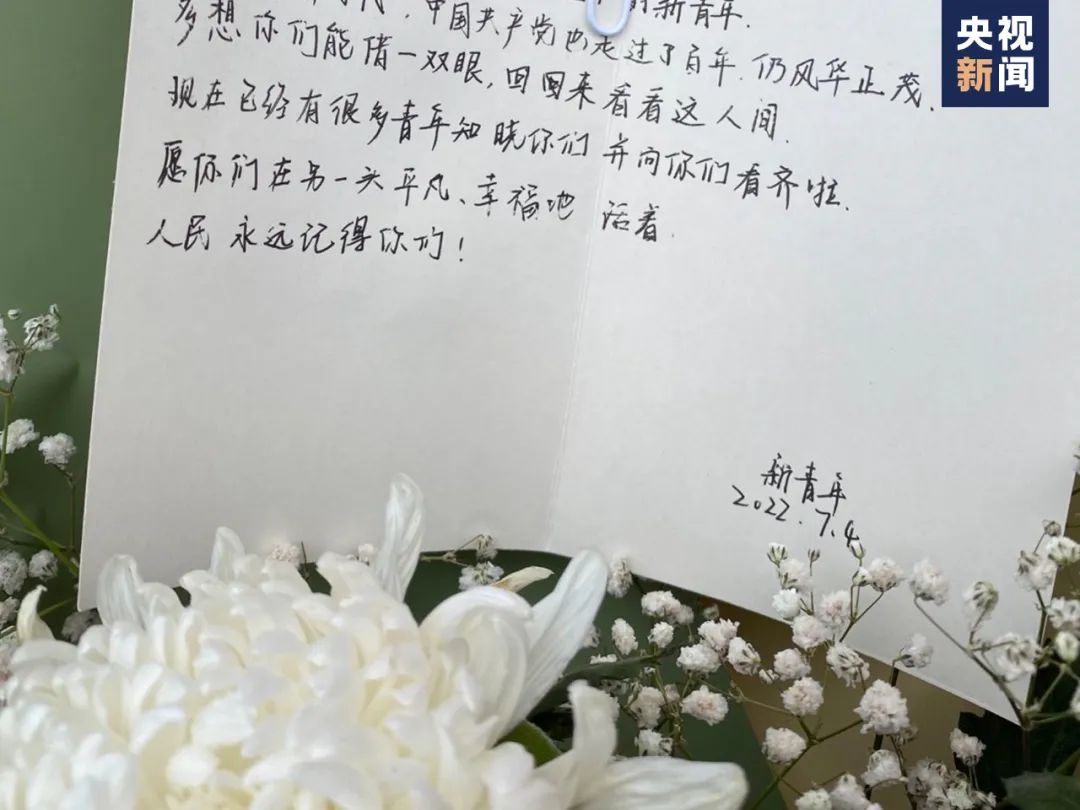 央视
新闻
的新青年.
代,中国共产党也走过了百年.仍风华正茂.
多想你们能借一双眼,回国来看看这人间.
现在已经有很多青年知晓你们并向你们看齐啦.
愿你们在另一头平凡、幸福地活着.
人民永远记得你们!
新青年
2022.7.4